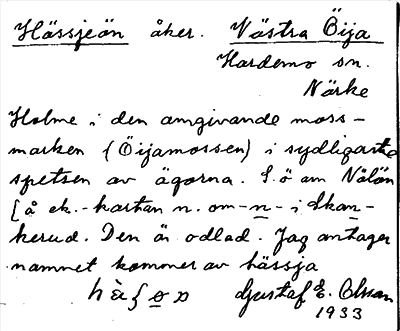 Hässjeön åker. Västra Öija
Hardemo sn.
Närke
Holme i den omgivande moss-
marken (Öijamossen) i sydligaste
spetsen av ägorna. S.ö om Nålön
[å ek.-kartan n. om -n- i Skan-
kerud. Den är odlad. Jag antager
namnet kommer av hässja
Gustaf E. Olsson
1933